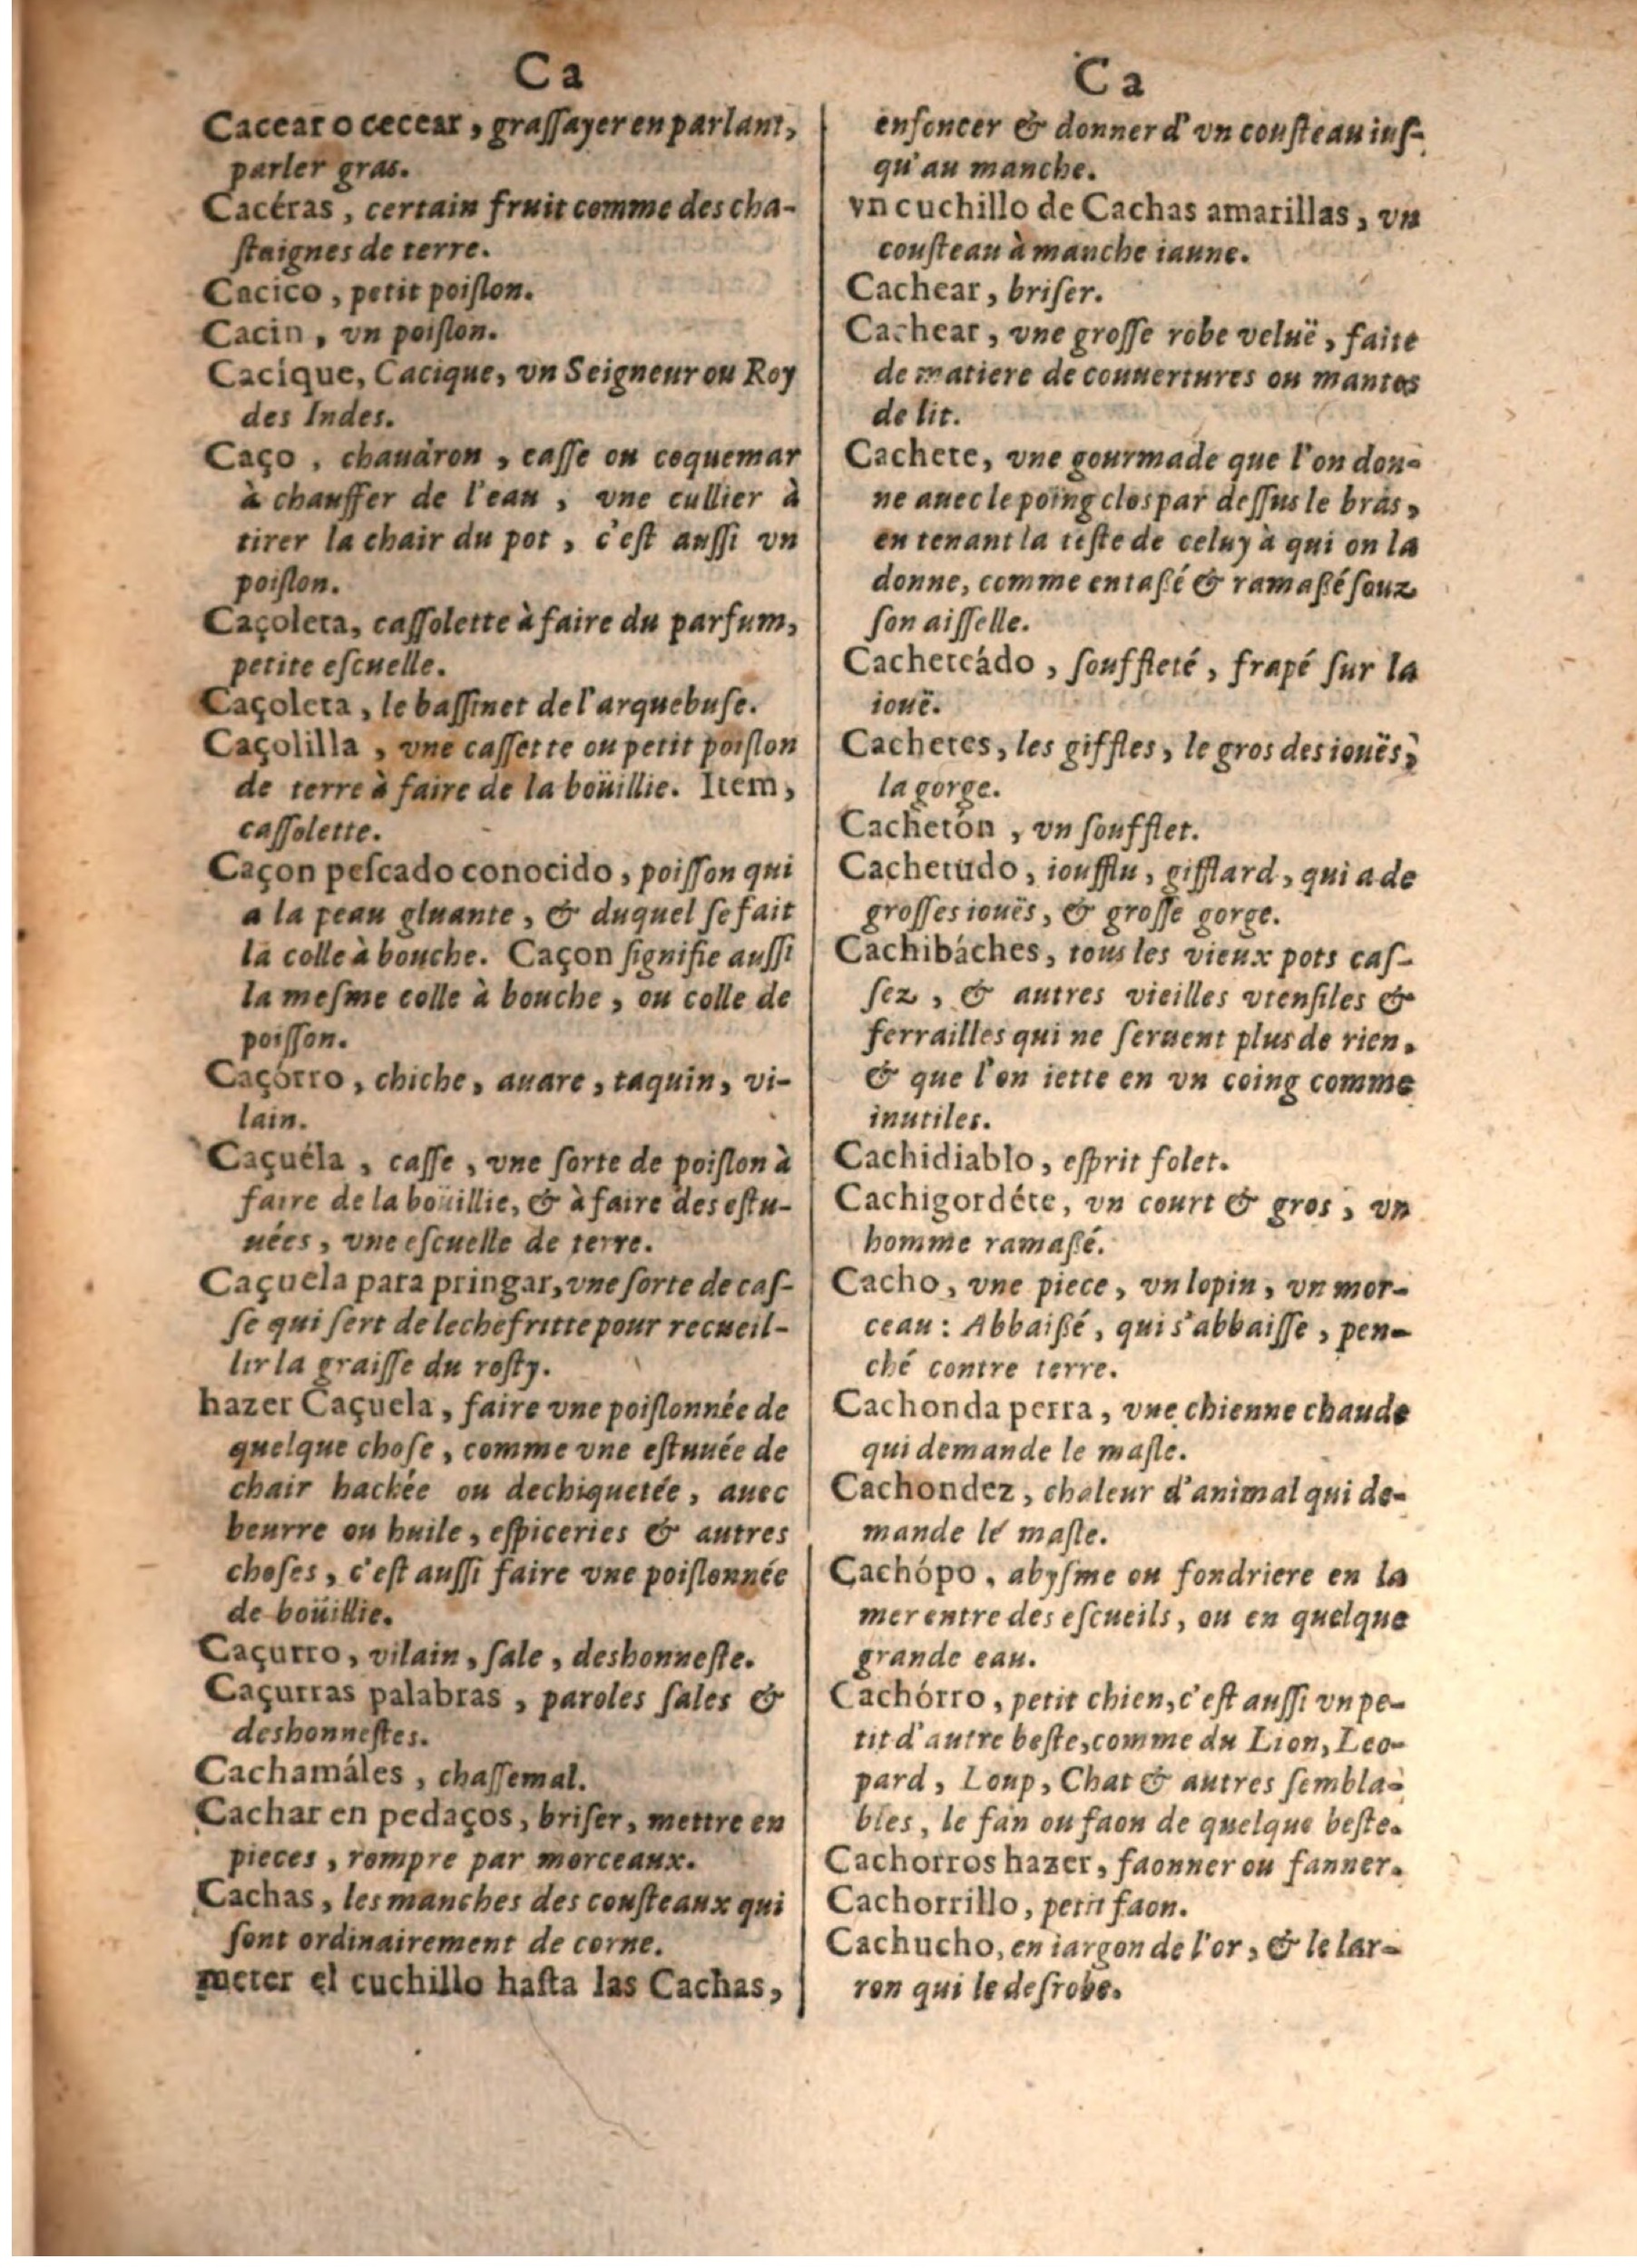 Ca
Cacear o cecear, graſſayer en parlant,
parler gras.
Cacéras, certain fruit comme des cha-
ſtaignes de terre.
Cacico, petit poiſlon.
Cacin, vn poiſlon.
Cacíque, Cacique, vn Seigneur ou Roy
des Indes.
Caço, chaudron, caſſe ou coquemar
à chauffer de l'eau, vne cullier à
tirer la chair du pot, c'eſt auſſi vn
poiſlon.
Caçoleta, caſſolette à faire du parfum,
petite eſcuelle.
Caçoleta, le baſſinet de l'arquebuſe.
Caçolilla, vne caſſette ou petit poiſlon
de terre à faire de la boüillie. Item,
caſſolette.
Caçon peſcado conocido, poiſſon qui
a la peau gluante, & duquel ſe fait
la colle à bouche. Caçon ſignifie auſſi
la meſme colle à bouche, ou colle de
poiſſon.
Caçórro, chiche, auare, taquin, vi-
lain.
Caçuéla, caſſe, vne ſorte de poiſlon à
faire de la boüillie, & à faire des eſtu-
uées, vne eſcuelle de terre.
Caçuela para pringar, vne ſorte de caſ-
ſe qui ſert de lechefritte pour recueil-
lir la graiſſe du roſty.
hazer Caçuela, faire vne poiſlonnée de
quelque choſe, comme vne eſtuuée de
chair hachée ou dechiquetée, auec
beurre ou huile, eſpiceries & autres
choſes, c'eſt auſſi faire vne poiſlonnée
de boüillie.
Caçurro, vilain, ſale, deshonneſte.
Caçurras palabras, paroles ſales &
deshonneſtes.
Cachamáles, chaſſemal.
Cachar en pedaços, briſer, mettre en
pieces, rompre par morceaux.
Cachas, les manches des couſteaux qui
ſont ordinairement de corne.
meter el cuchillo haſta las Cachas,
Ca
enfoncer & donner d'vn couſteau iuſ-
qu'au manche.
vn cuchillo de Cachas amarillas, vn
couſteau à manche iaune.
Cachear, briſer.
Cachear, vne groſſe robe veluë, faite
de matiere de couuertures ou mantes
de lit.
Cachete, vne gourmade que l'on don-
ne auec le poing clos par deſſus le bras,
en tenant la teſte de celuy à qui on la
donne, comme entaßé & ramaßé ſouz
ſon aiſſelle.
Cacheteádo, ſouffleté, frapé ſur la
iouë.
Cachetes, les giffles, le gros des iouës,
la gorge.
Cachetón, vn ſoufflet.
Cachetudo, ioufflu, gifflard, qui a de
groſſes iouës, & groſſe gorge.
Cachibáches, tous les vieux pots caſ-
ſez, & autres vieilles vtenſiles &
ferrailles qui ne ſeruent plus de rien,
& que l'on iette en vn coing comme
inutiles.
Cachidiablo, eſprit folet.
Cachigordéte, vn court & gros, vn
homme ramaßé.
Cacho, vne piece, vn lopin, vn mor-
ceau: Abbaißé, qui s'abbaiſſe, pen-
ché contre terre.
Cachonda perra, vne chienne chaude
qui demande le maſle.
Cachondez, chaleur d'animal qui de-
mande le maſle.
Cachópo, abyſme ou fondriere en la
mer entre des eſcueils, ou en quelque
grande eau.
Cachórro, petit chien, c'eſt auſſi vn pe-
tit d'autre beſte, comme du Lion, Leo-
pard, Loup, Chat & autres ſembla-
bles, le fan ou faon de quelque beſte.
Cachorros hazer, faonner ou fanner.
Cachorrillo, petit faon.
Cachucho, en iargon de l'or, & le lar-
ron qui le deſrobe.